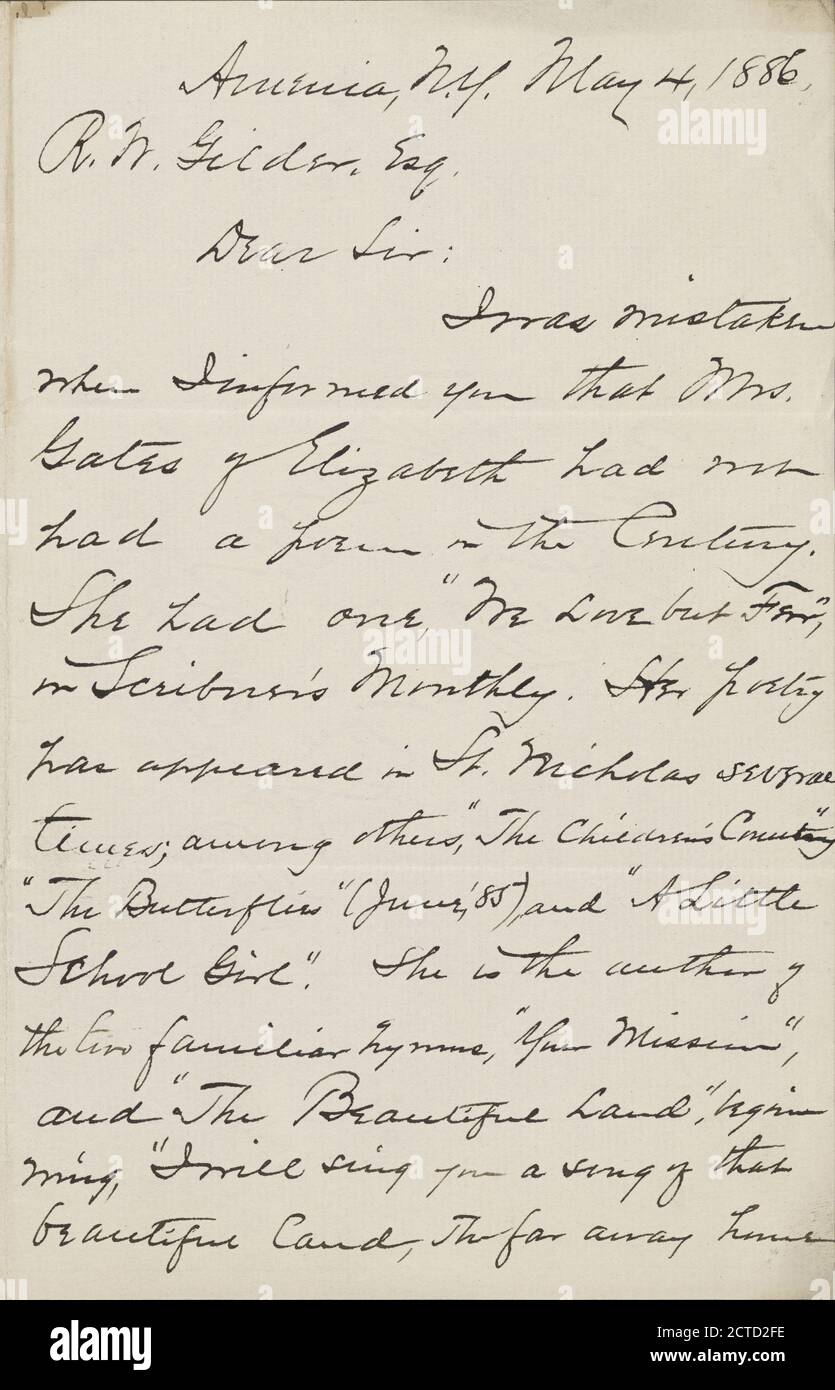 Amenia, N.Y. May 4, 1886.
R. W. Gilder, Esq.
Dear Sir:
I was mistaken
when I informed you that Mrs.
Gates of Elizabeth had not
had a poem in the Century.
She had one, "We Love but Few",
in Scribner's Monthly. Her poetry
has appeared in St. Nicholas several
times; among others, "The Children's Country"
"The Butterflies" (June, '85), and "A Little
School Girl". She is the author of
the two familiar hymns, "Your Mission",
and "The Beautiful Land", begin
ning, "I will sing you a song of that
beautiful land, The far away home
alamy
alamy
alamy
Image ID: 2CTD2FE
www.alamy.com